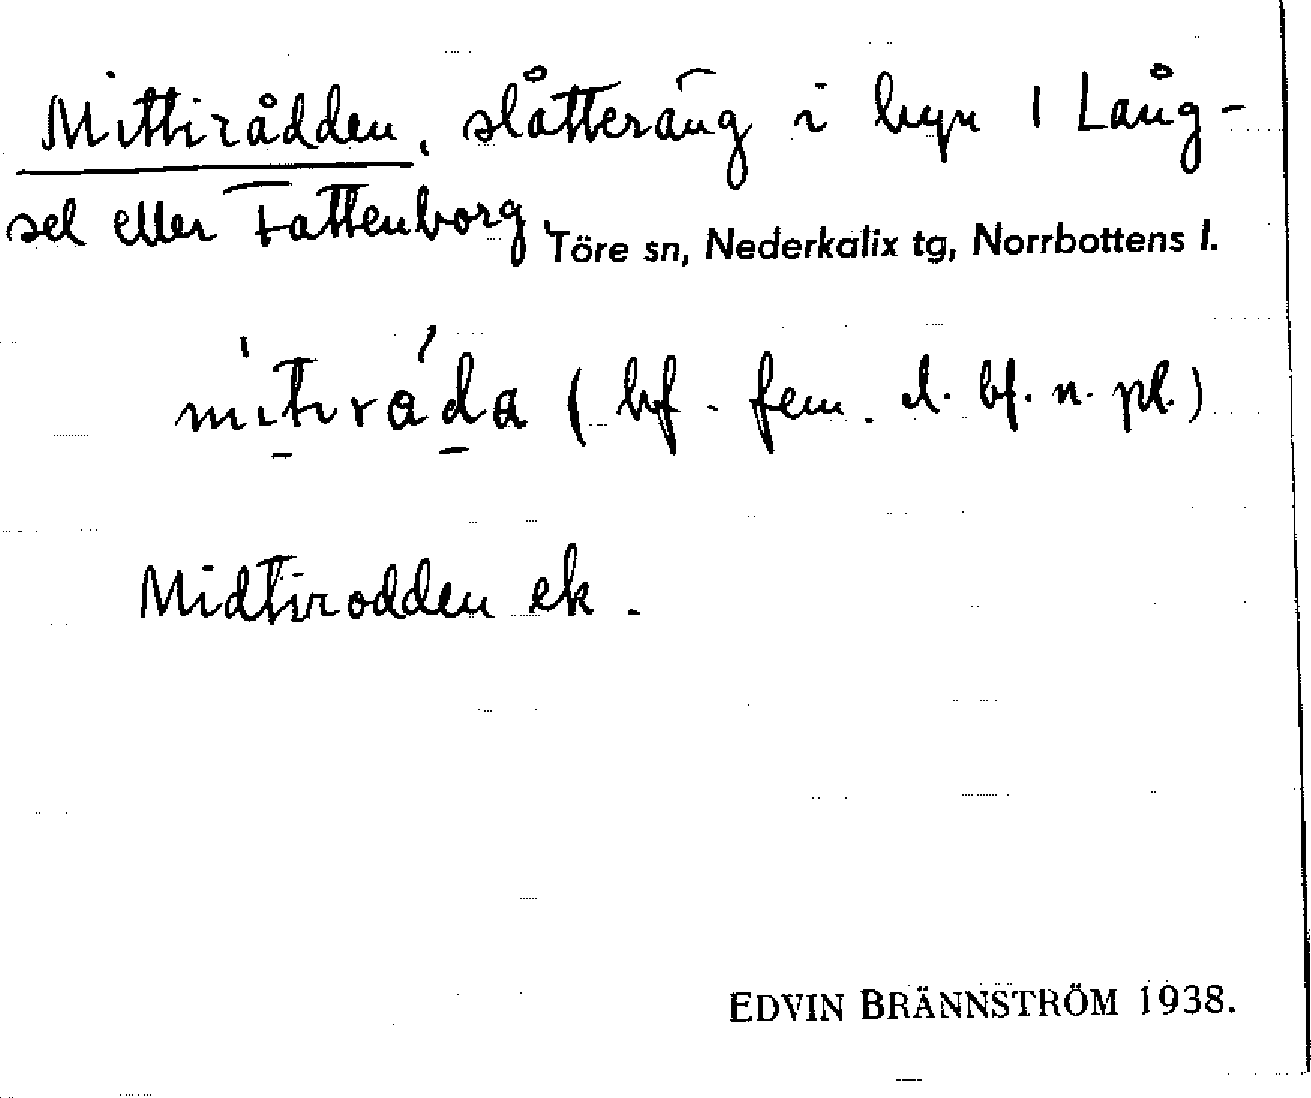 Mittirådden, slåtteräng i byn 1 Lång-
sel eller Fattenborg,
Töre sn, Nederkalix tg, Norrbottens l.
(bf. fem. l. bf. n. pl.)
Midtirodden ek.
EDVIN BRÄNNSTRÖM 1938.